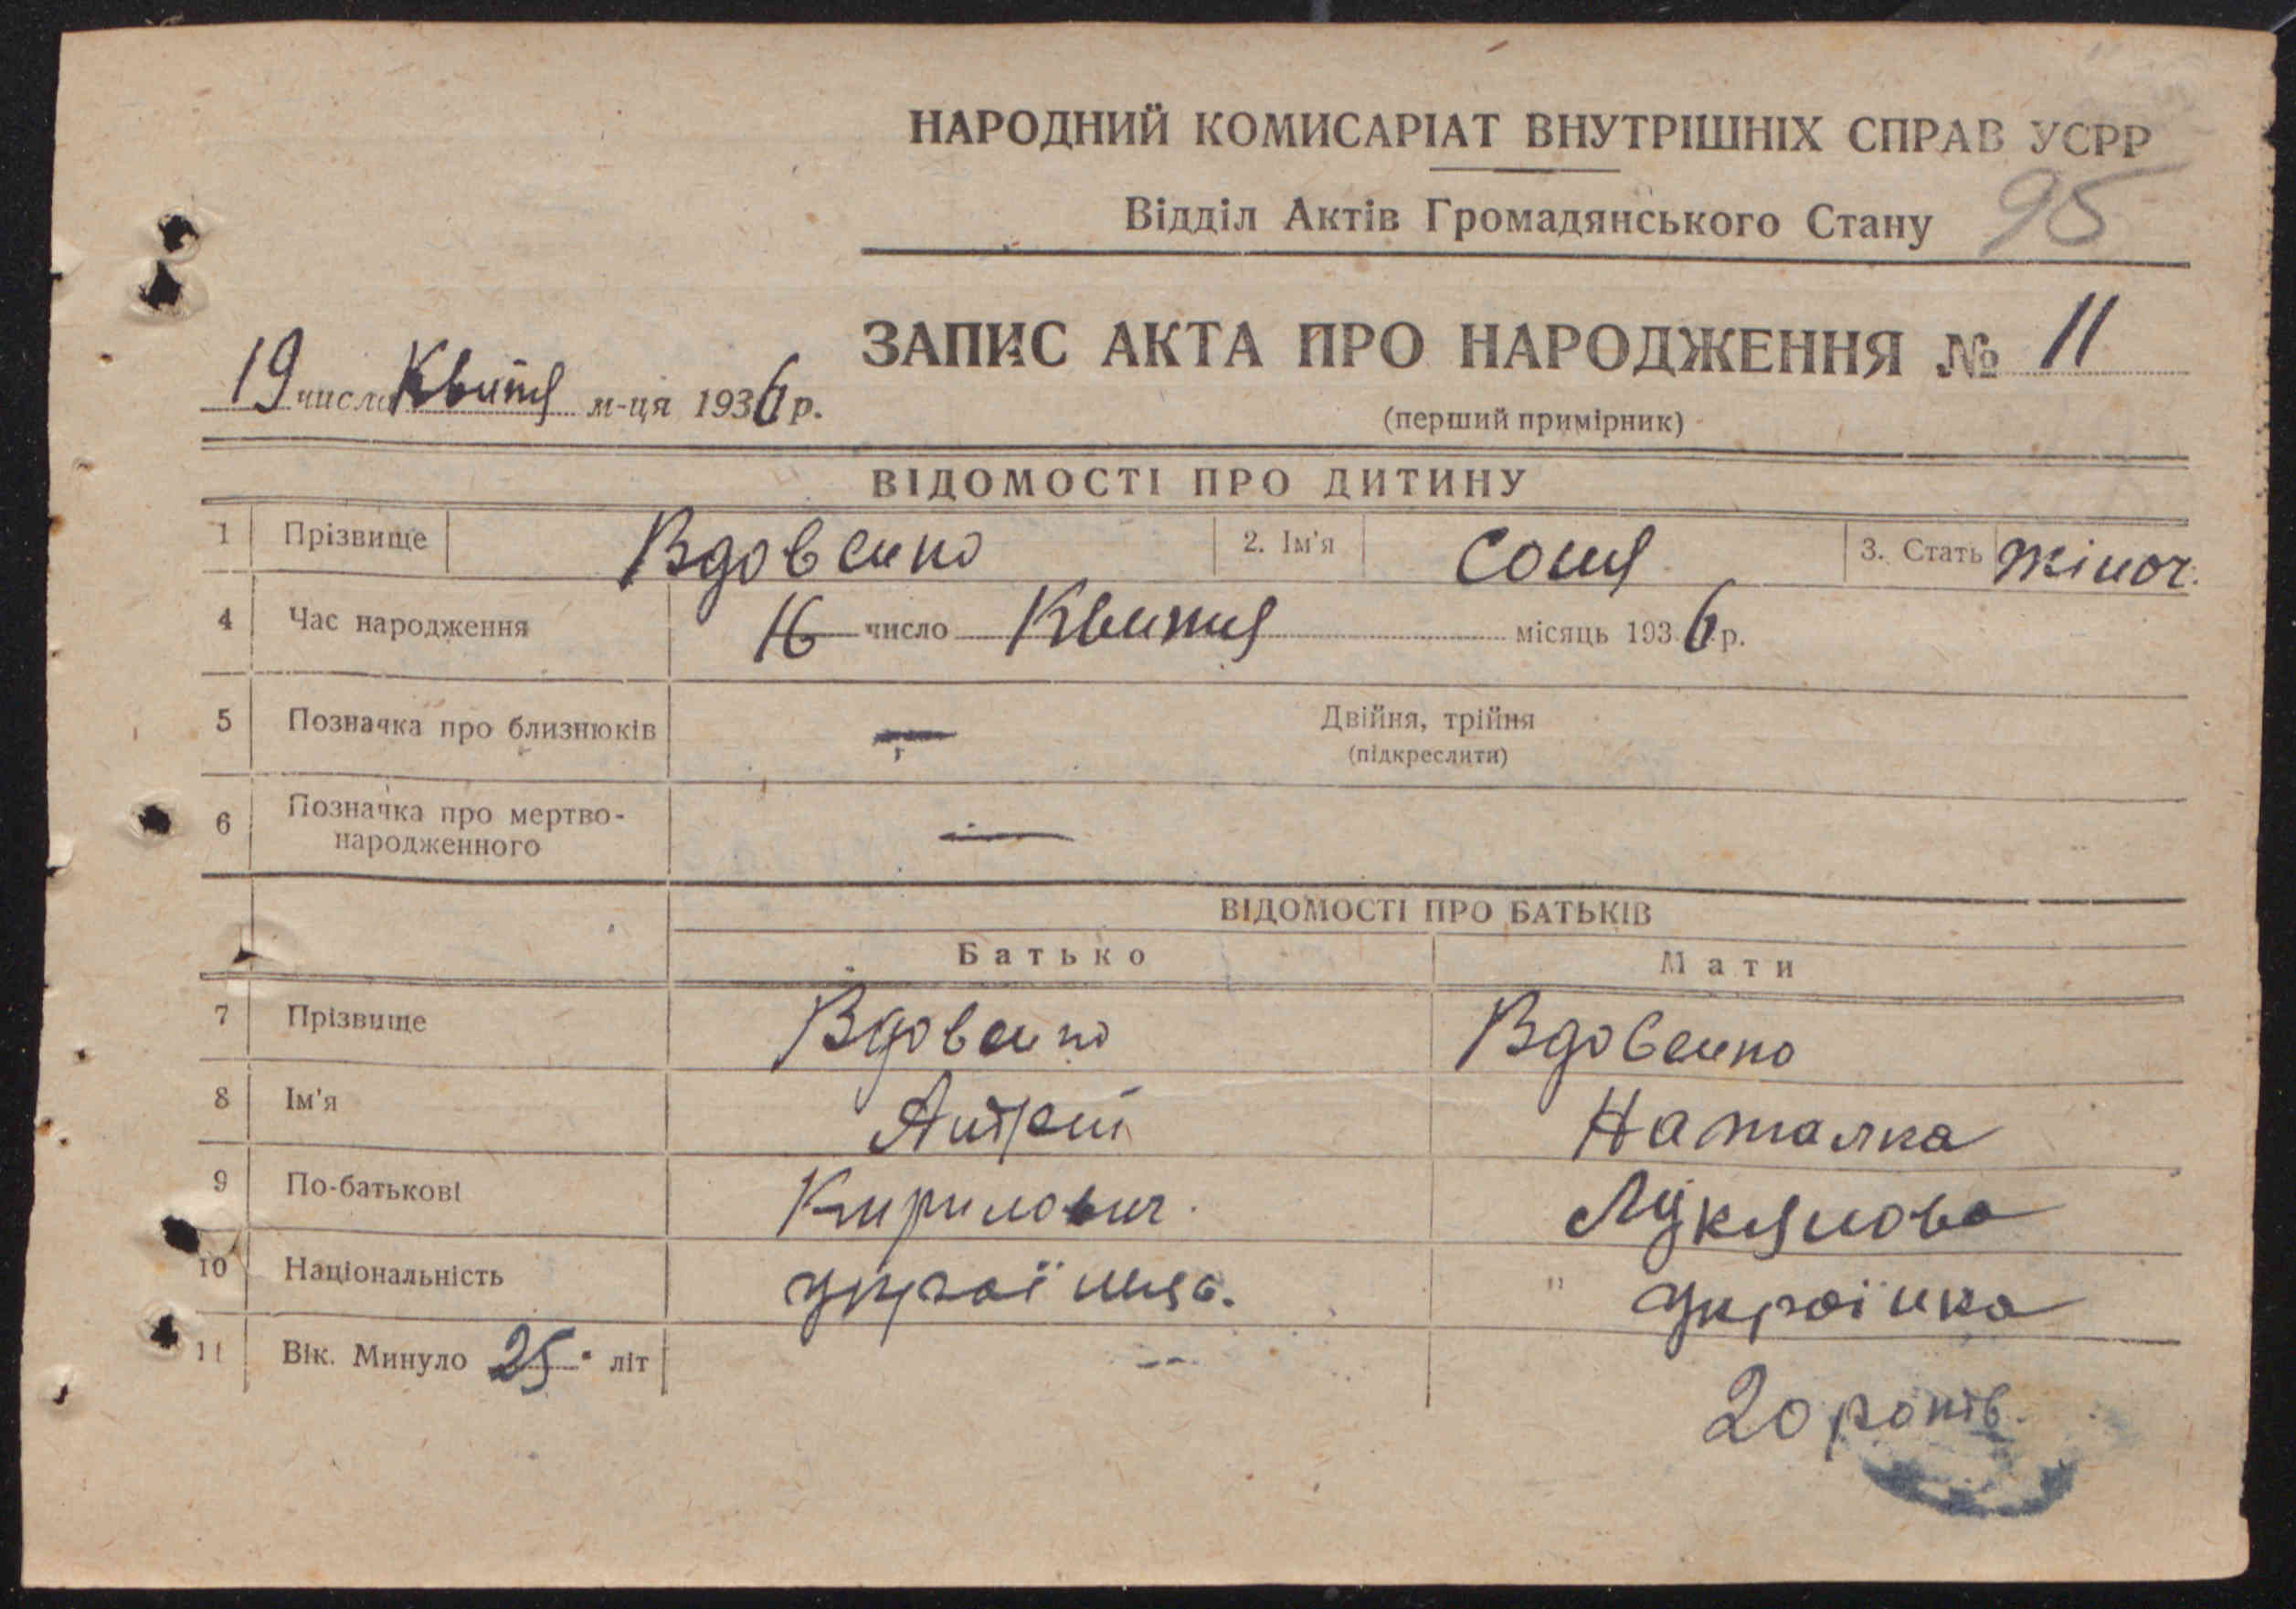 НАРОДНИЙ КОМИСАРІАТ ВНУТРІШНІХ СПРАВ УСРР
Відділ Актів Громадянського Стану 95
ЗАПИС АКТА ПРО НАРОДЖЕННЯ № 11
19 числа Квітня м-ця 1936 р.
(перший примірник)
ВІДОМОСТІ ПРО ДИТИНУ
1 Прізвище Вдовенко 2. Ім'я Соня 3. Стать жіноч.
4 Час народження 16 число Квитня місяць 1936 р.
5 Позначка про близнюків — Двійня, трійня
(підкреслити)
6 Позначка про мертво-
народженного —
ВІДОМОСТІ ПРО БАТЬКІВ
Батько Мати
7 Прізвище Вдовенко Вдовенко
8 Ім'я Андрей Наталка
9 По-батькові Кирилович. Лукянова
10 Національність " українка
11 Вік. Минуло 25 літ --
20 років.